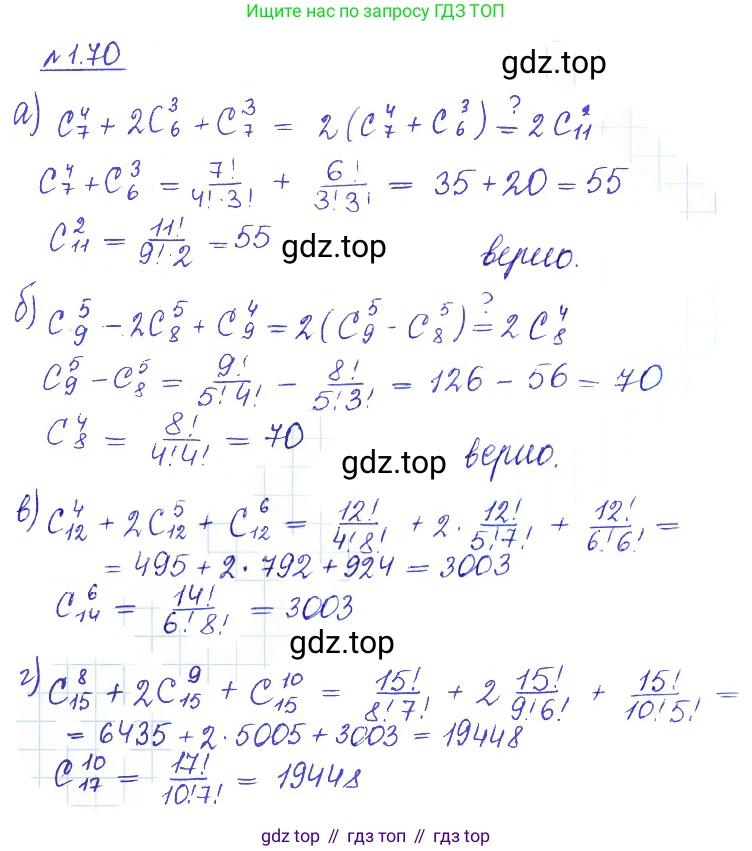 Ищите нас по запросу ГДЗ ТОП
№1.70
gdz.top
а) C₇⁴ + 2C₆³ + C₇³ = 2(C₇⁴ + C₆³) ≟ 2C₁₁²
C₇⁴ + C₆³ = 7!/(4!·3!) + 6!/(3!3!) = 35 + 20 = 55
C₁₁² = 11!/(9!·2) = 55 gdz.top верно.
б) C₉⁵ − 2C₈⁵ + C₉⁴ = 2(C₉⁵ − C₈⁵) ≟ 2C₈⁴
C₉⁵ − C₈⁵ = 9!/(5!4!) − 8!/(5!3!) = 126 − 56 = 70
C₈⁴ = 8!/(4!4!) = 70 gdz.top верно.
в) C₁₂⁴ + 2C₁₂⁵ + C₁₂⁶ = 12!/(4!8!) + 2·12!/(5!7!) + 12!/(6!6!) =
= 495 + 2·792 + 924 = 3003
C₁₄⁶ = 14!/(6!8!) = 3003
gdz.top
г) C₁₅⁸ + 2C₁₅⁹ + C₁₅¹⁰ = 15!/(8!7!) + 2 15!/(9!6!) + 15!/(10!5!) =
= 6435 + 2·5005 + 3003 = 19448
C₁₇¹⁰ = 17!/(10!7!) = 19448
gdz.top // гдз топ // gdz.top